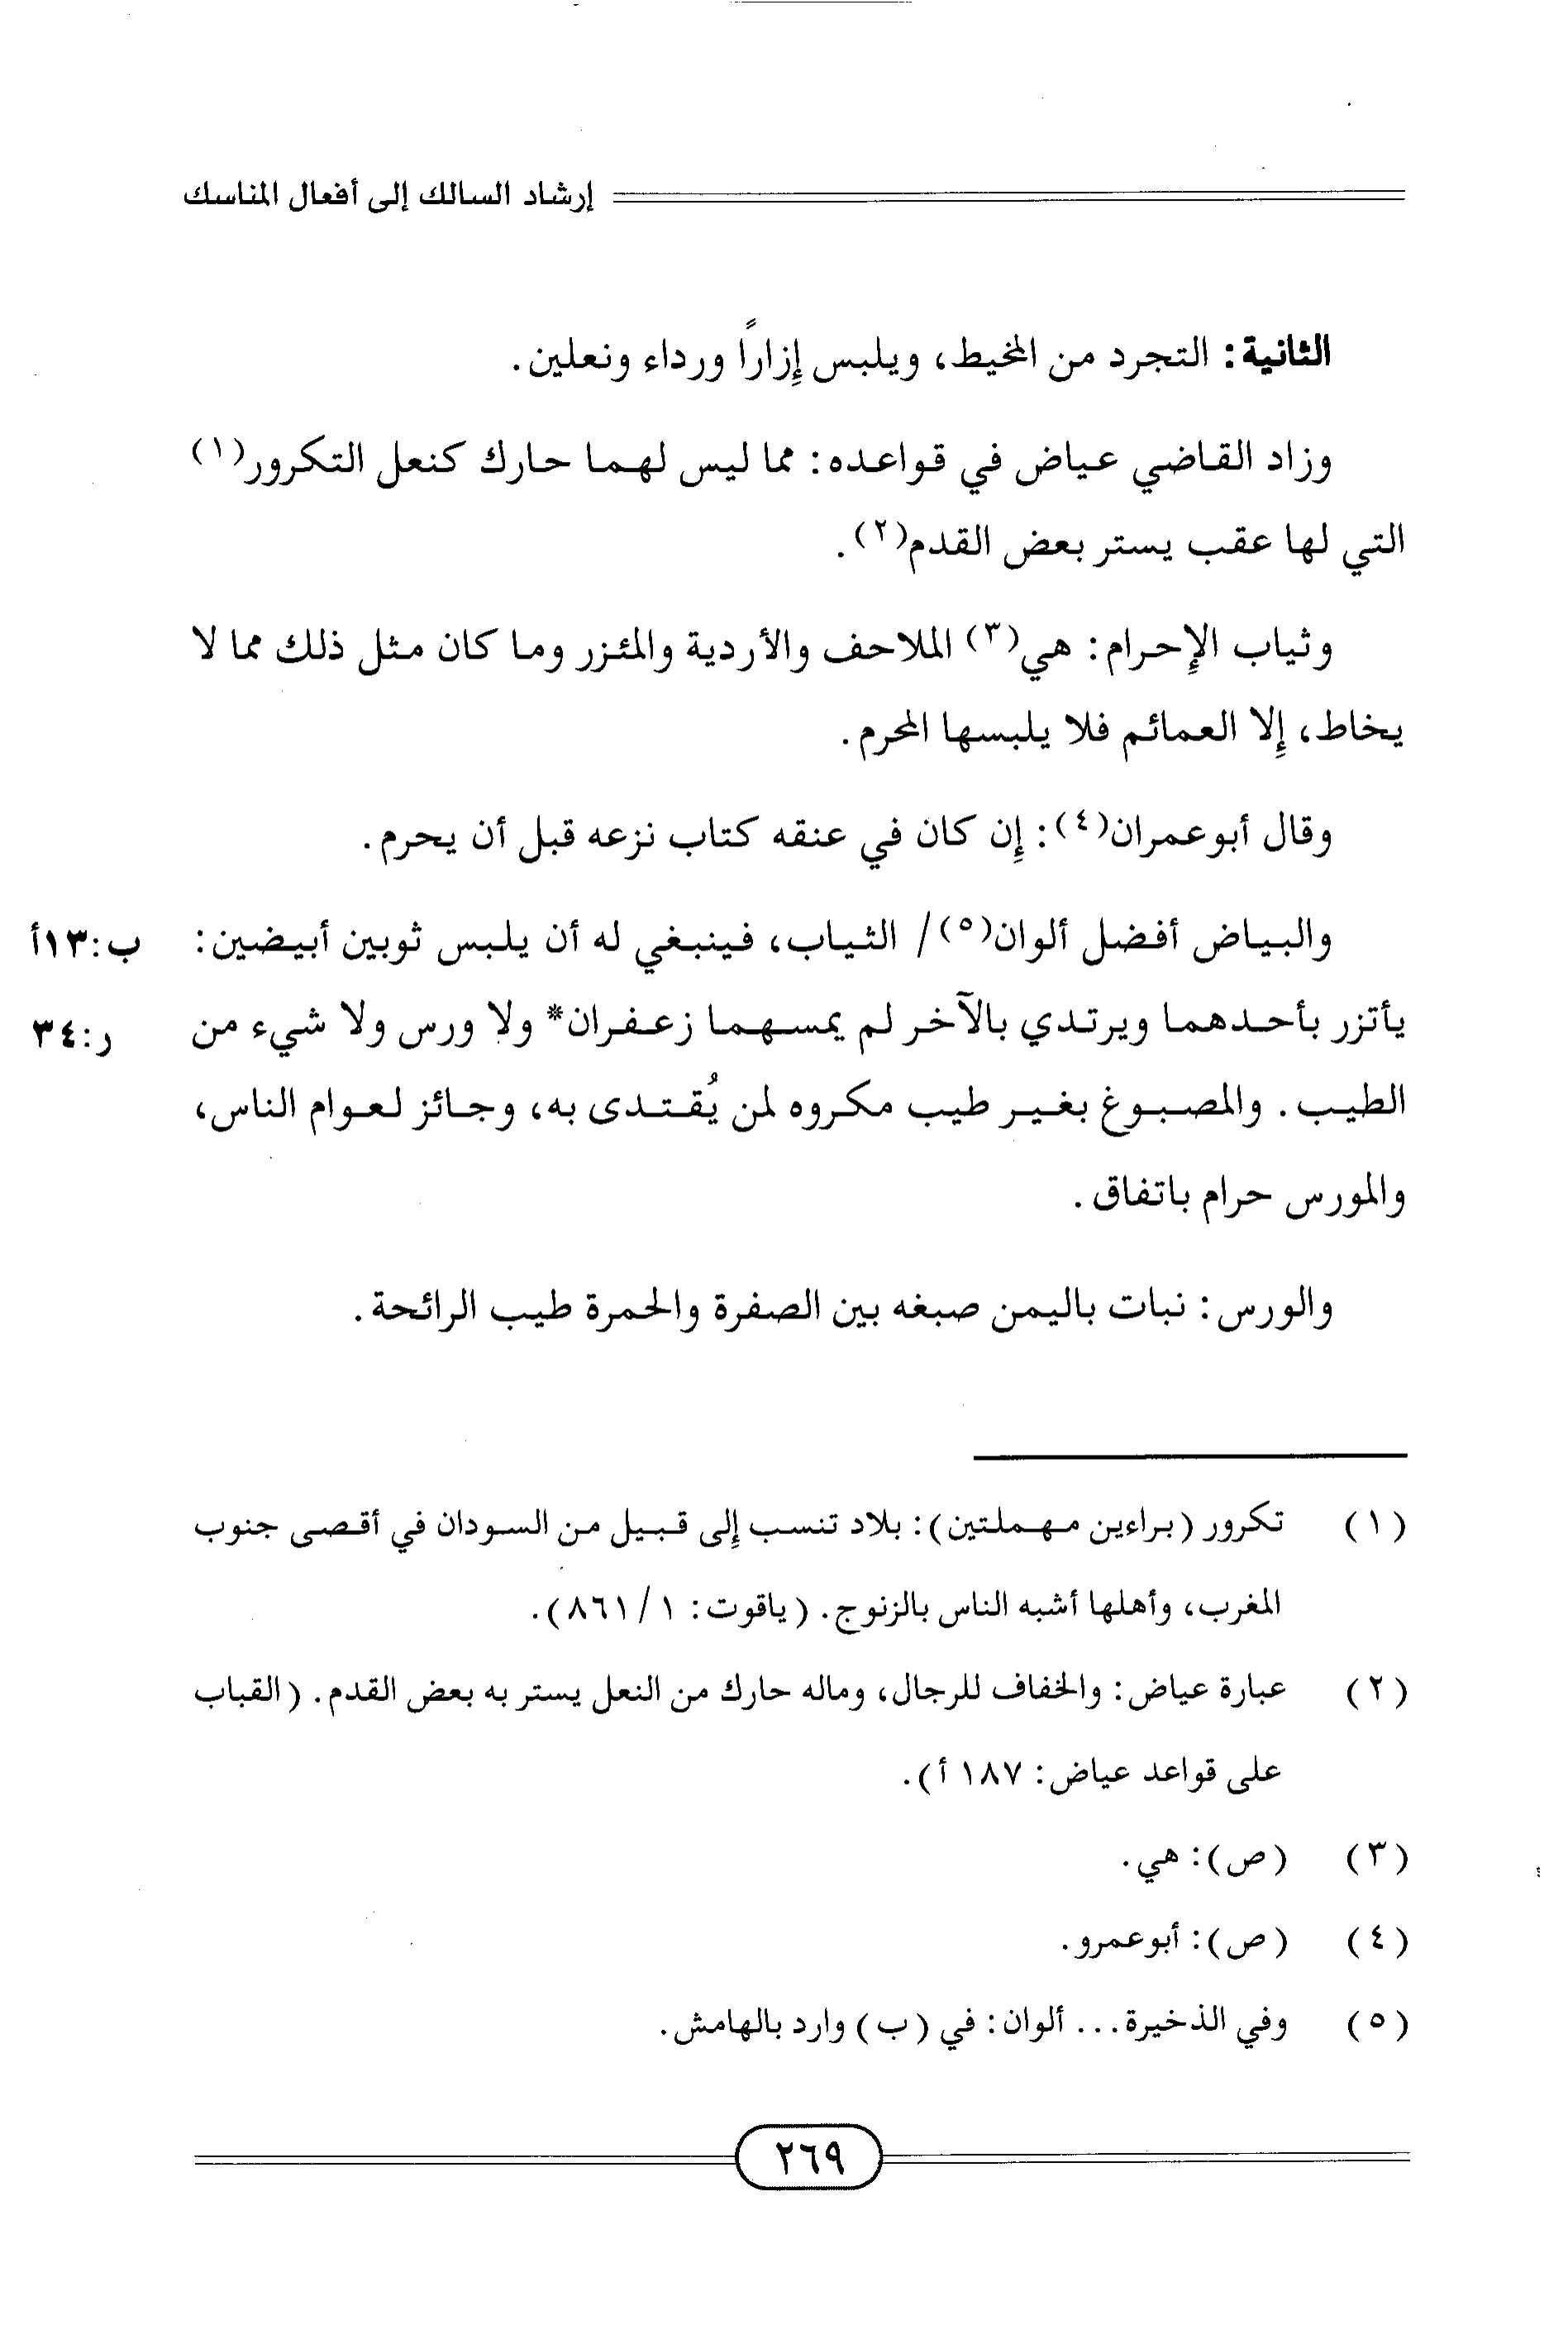 إرشاد السالك إلى أفعال المناسك
الثانية: التجرد من المخيط، ويلبس إِزاراً ورداء ونعلين.
وزاد القاضي عياض في قواعده: مما ليس لهما حارك كنعل التكرور(١)
التي لها عقب يستر بعض القدم(٢).
وثياب الإِحرام: هي(٣) الملاحف والأردية والمئزر وما كان مثل ذلك مما لا
يخاط، إِلا العمائم فلا يلبسها المحرم.
وقال أبوعمران(٤): إِن كان في عنقه كتاب نزعه قبل أن يحرم.
والبياض أفضل ألوان(٥)/ الثياب، فينبغي له أن يلبس ثوبين أبيضين: ب:١٣أ
يأتزر بأحدهما ويرتدي بالآخر لم يمسهما زعفران* ولا ورس ولا شيء من ر:٣٤
الطيب. والمصبوغ بغير طيب مكروه لمن يُقتدى به، وجائز لعوام الناس،
والمورس حرام باتفاق.
والورس: نبات باليمن صبغه بين الصفرة والحمرة طيب الرائحة.
(١) تكرور (براءين مهملتين): بلاد تنسب إِلى قبيل من السودان في أقصى جنوب
المغرب، وأهلها أشبه الناس بالزنوج. (ياقوت: ١/٨٦١).
(٢) عبارة عياض: والخفاف للرجال، وماله حارك من النعل يستر به بعض القدم. (القباب
على قواعد عياض: ١٨٧ أ).
(٣) (ص): هي.
(٤) (ص): أبوعمرو.
(٥) وفي الذخيرة... ألوان: في (ب) وارد بالهامش.
٢٦٩